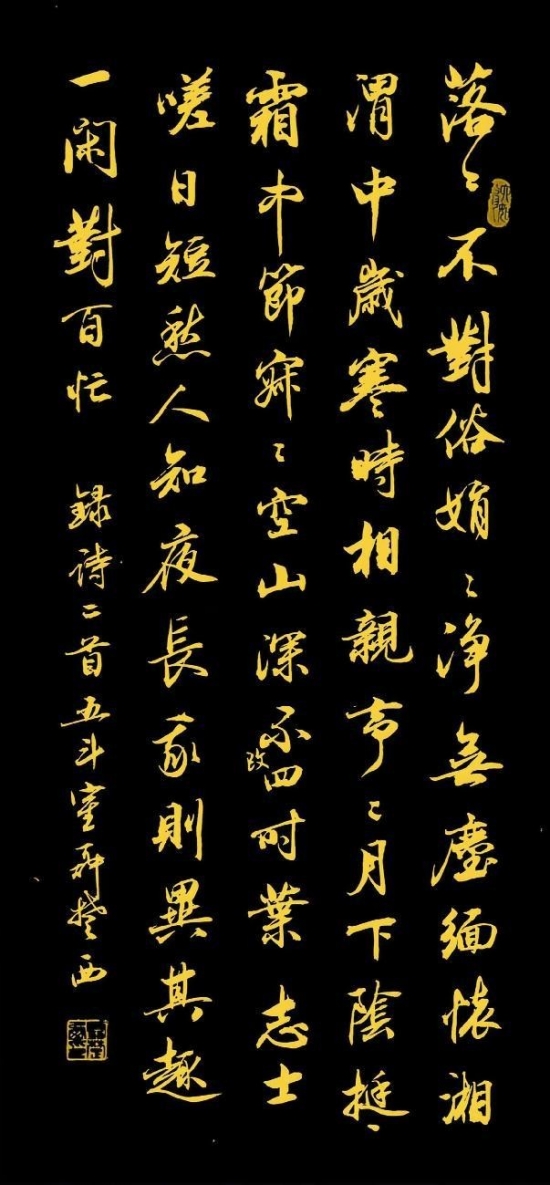 落〻不對俗娟〻净無塵緬懷湘
渭中歲寒時相親亭〻月下陰挺〻
霜中節寂〻空山深不改四时葉志士
嗟日短愁人知夜長我則異其趣
一闲對百忙 録诗二首五斗室楚西